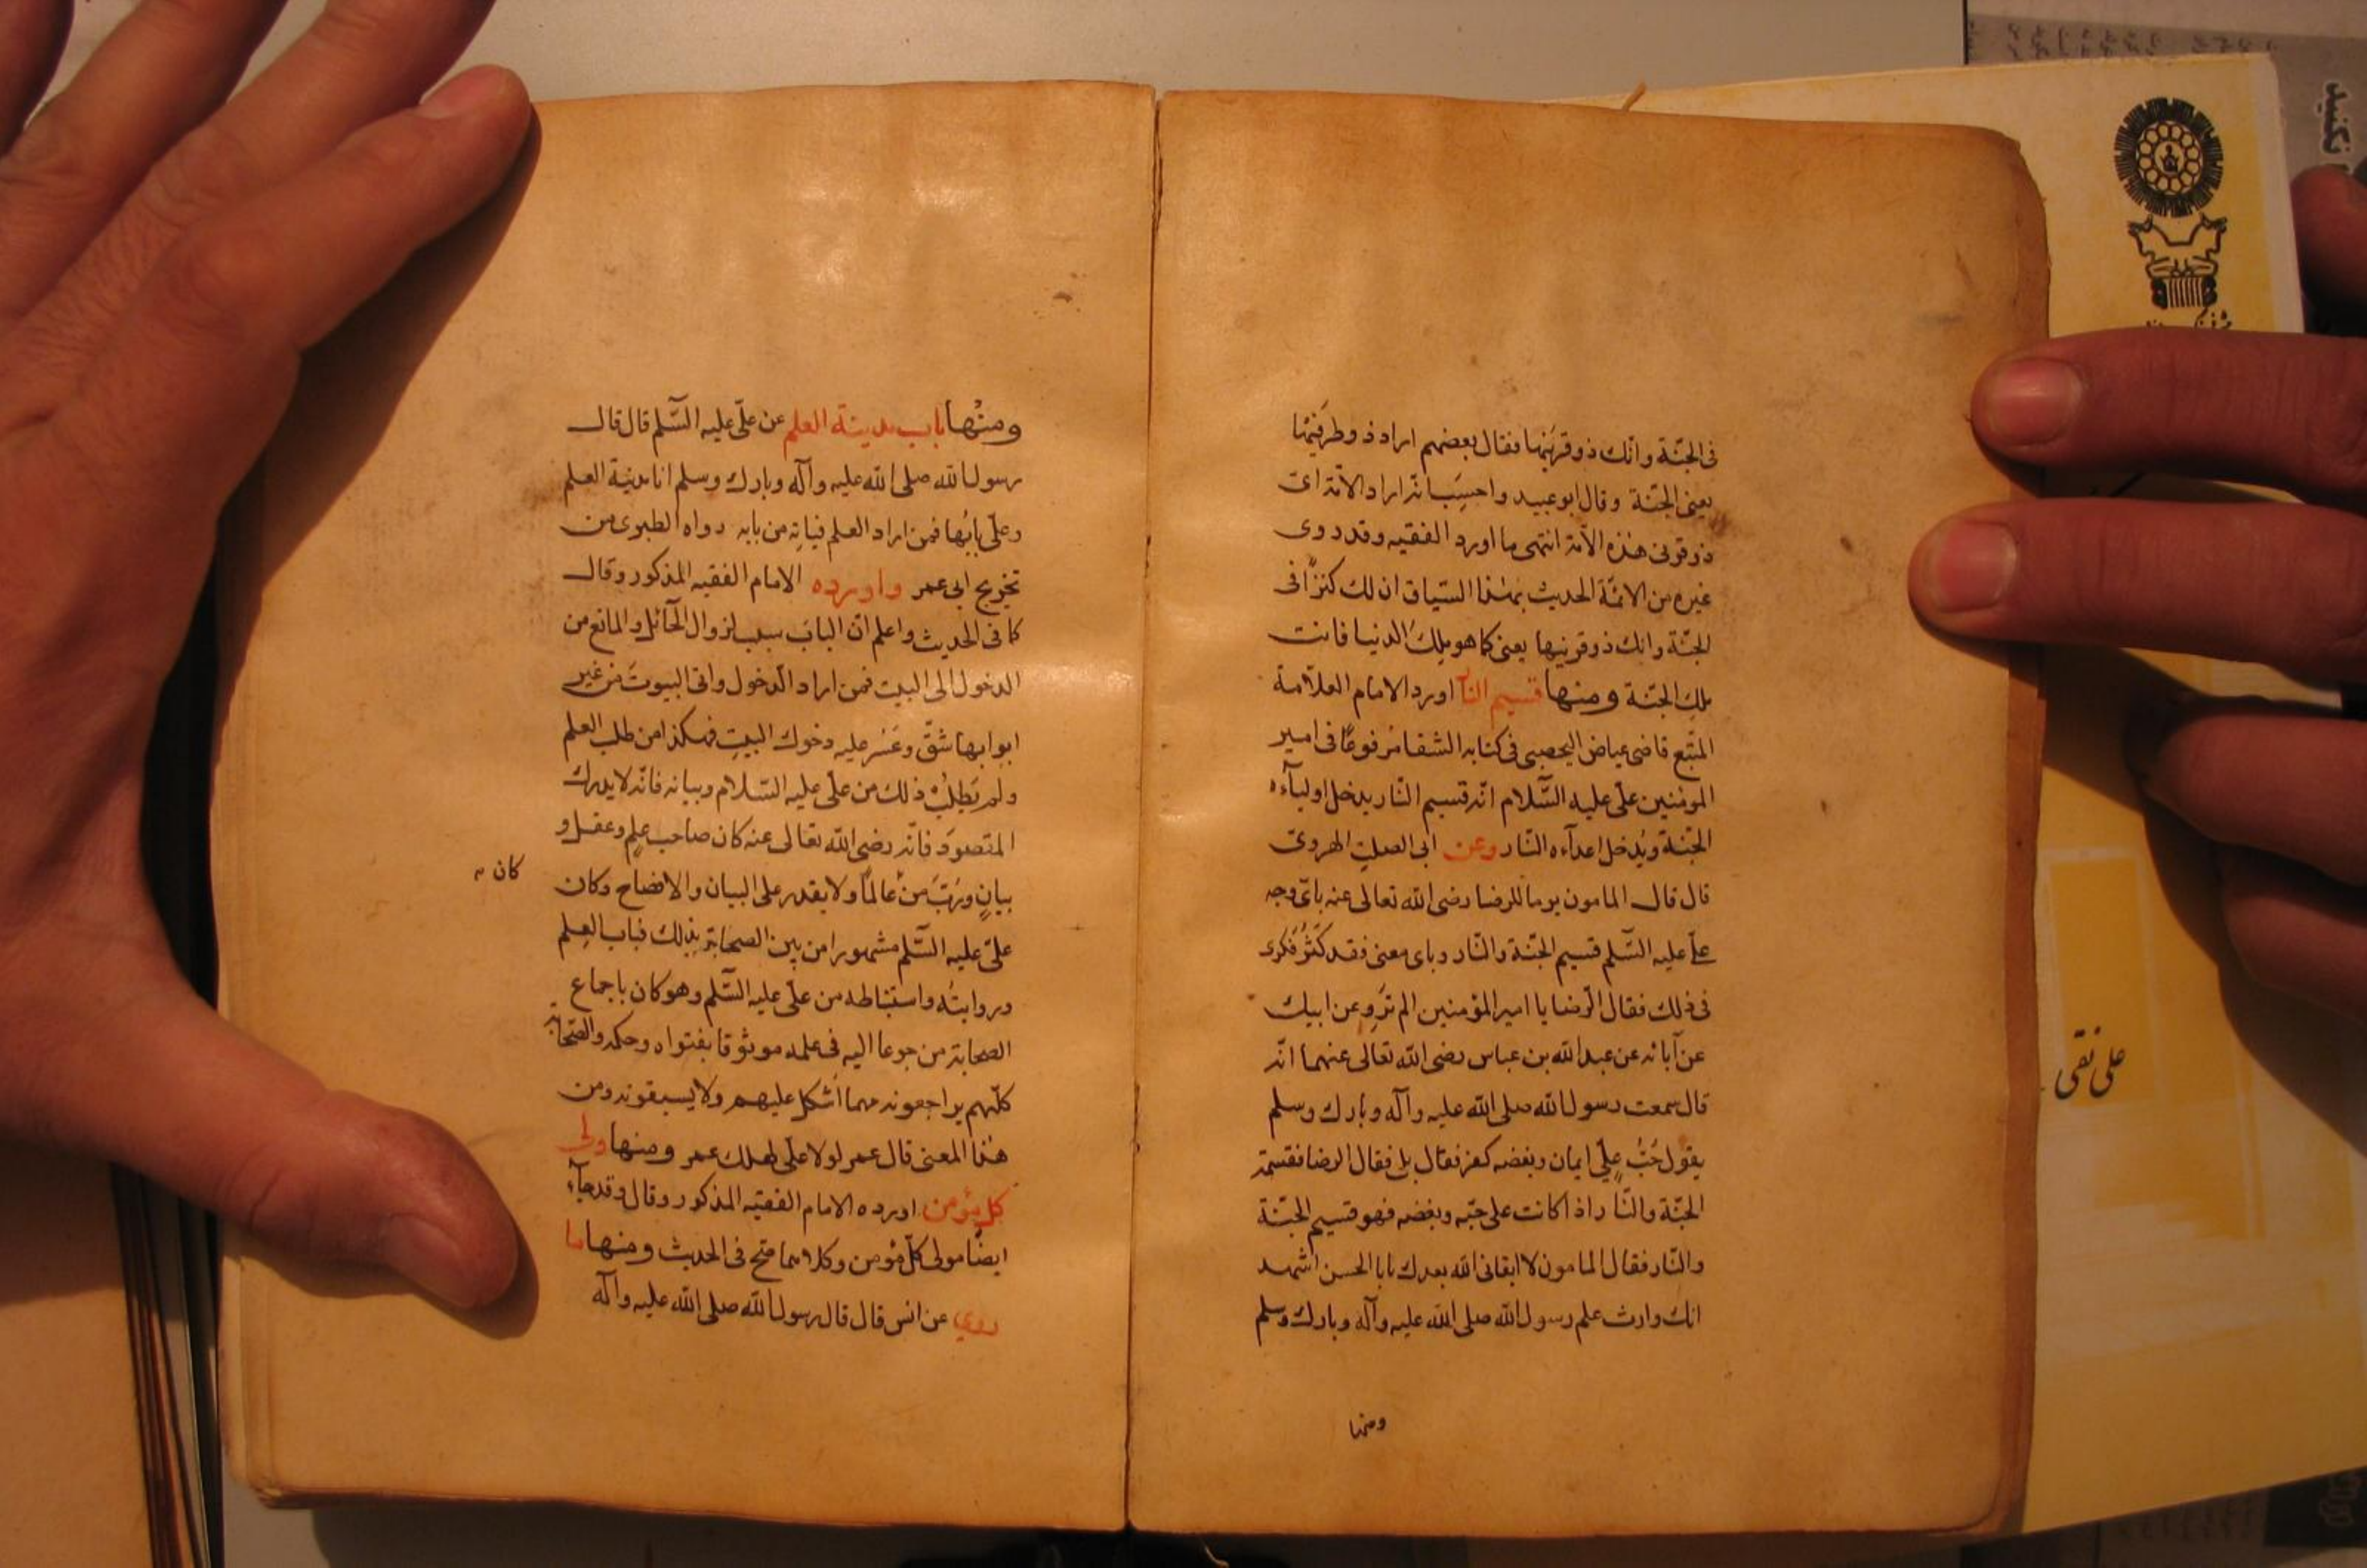 فى الجنّة وانّك ذوقرنيها فقال بعضهم اراد ذوطرفيها
يعنى الجنّة وقال ابوعبيد واحسِبَ انّه اراد الامّة اى
ذوقرنى هذه الامّة انتهى ما اورد الفقيه وقد روى
غيره من الائمّة الحديث بهذا السّياق ان لك كنزًا فى
الجنّة وانك ذوقرنيها يعنى كما هو ملِكَ الدنيا فانت
ملِك الجنّة ومنها قسيم النار اورد الامام العلّامة
المتّبع قاضى عياض اليحصبى فى كتابه الشفا مرفوعًا فى امير
المومنين علىّ عليه السّلام انّه قسيم النّار يدخل اولياءه
الجنّة ويُدخل اعداءه النّار وعن ابى الصلت الهروىّ
قال قال المامون يوما للرضا رضى الله تعالى عنه باىّ وجه
علىّ عليه السّلم قسيم الجنّة والنّار وباى معنى فقد كَثُرَ فكرى
فى ذلك فقال الرّضا يا امير المؤمنين الم تَروِ عن ابيك
عن آبائه عن عبد الله بن عباس رضى الله تعالى عنهما انّه
قال سمعت رسول الله صلى الله عليه وآله وبارك وسلم
يقول حُبُّ علىٍّ ايمان وبغضه كفر فقال بلى فقال الرضا فقسمة
الجنّة والنّار اذا كانت على حبّه وبغضه فهو قسيم الجنّة
والنّار فقال المامون لا ابقانى الله بعدك يابا الحسن اشهد
انك وارث علم رسول الله صلى الله عليه وآله وبارك وسلم
ومنها
ومنها باب مدينة العلم عن علىّ عليه السّلم قال قال
رسول الله صلى الله عليه وآله وبارك وسلم انا مدينة العلم
وعلىّ بابُها فمن اراد العلم فياتِه من بابه رواه الطبرى من
تخريج ابى عمر واورده الامام الفقيه المذكور وقال
كما فى الحديث واعلم انّ البابَ سبب لزوال الحائل والمانع من
الدخول الى البيت فمن اراد الدخول واتى البيوتَ من غير
ابوابها شقّ وعَسُر عليه دخول البيتِ فهكذا من طلب العلم
ولم يَطلبْ ذلك من علىّ عليه السّلام وبيانه فانّه لا يدرك
المقصودَ فانّه رضى الله تعالى عنه كان صاحب علمٍ وعقل و
بيانٍ ورُبَّ مَنْ عالمًا ولا يقدر على البيان والافصاح وكان
كان
علىّ عليه السّلم مشهورا من بين الصحابة بذلك فباب العِلم
وروايتُه واستنباطه من علىّ عليه السّلم وهو كان باجماع
الصحابة مرجوعا اليه فى علمه موثوقا بفتواه وحكمه والصّحابة
كلّهم يراجعونه مهما اَشكل عليهم ولا يسبقونه ومن
هذا المعنى قال عمر لولا علىّ لهلك عمر ومنها ولى
كل مؤمن اورده الامام الفقيه المذكور وقال وقد جاء
ايضًا مولى كلّ مؤمن وكلاهما صحّ فى الحديث ومنها ما
روى عن انس قال قال رسول الله صلى الله عليه وآله
على نقى
نكنيد